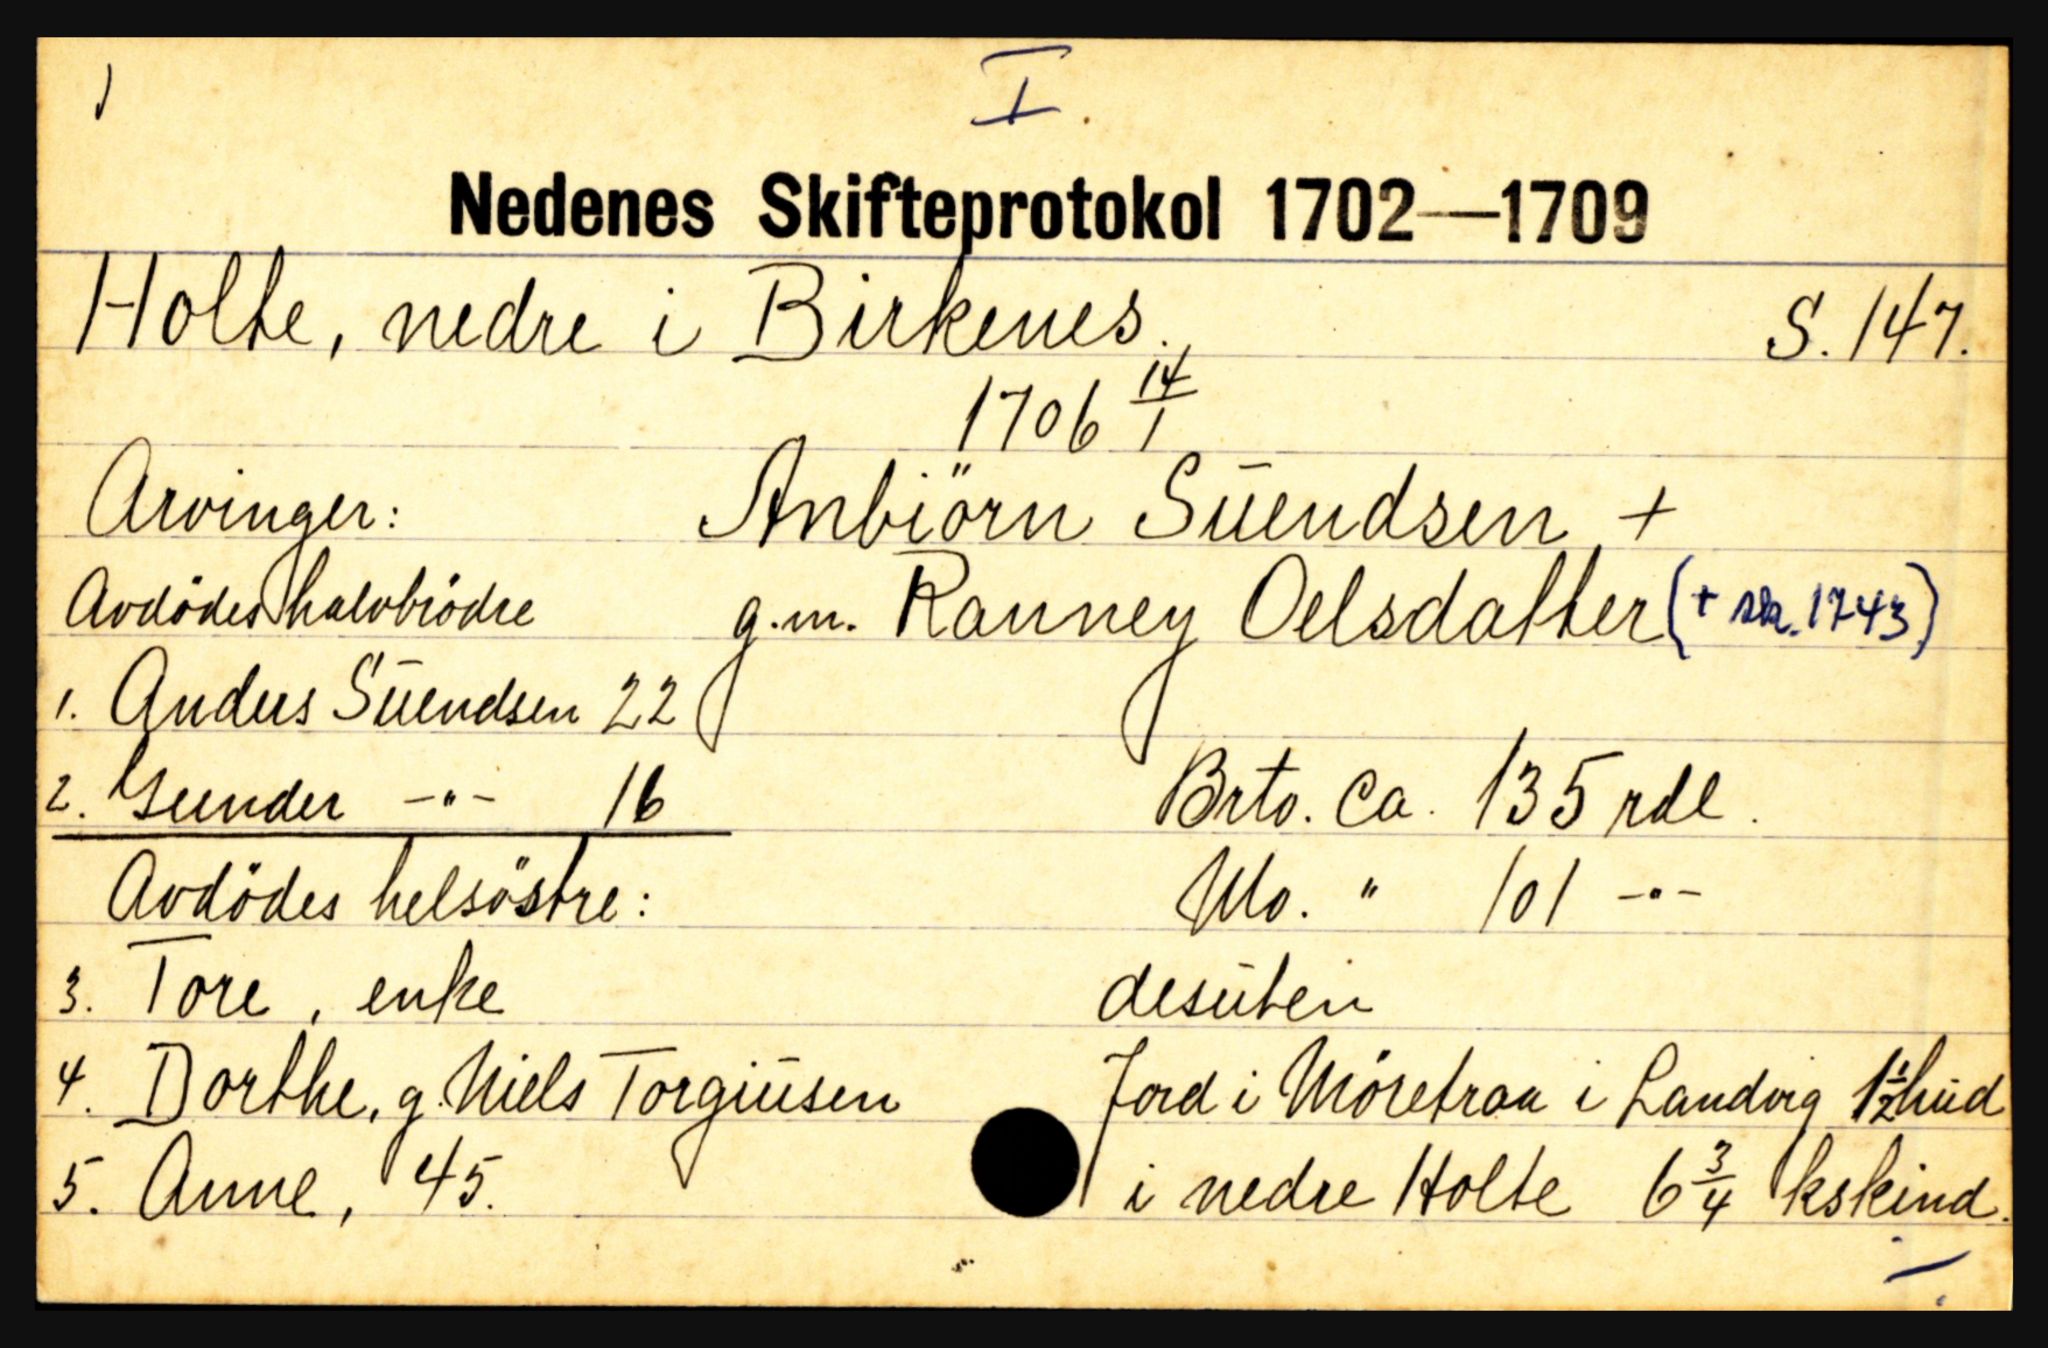 I.
Nedenes Skifteprotokol 1702—1709
Holte, nedre i Birkenes. S. 147.
1706 14/1
Arvinger: Anbiörn Sūendsen +
Avdödes halvbrödre g.m. Ranney Oelsdatter (+ sk. 1743)
1. Anders Sūendsen 22
2. Gunder -"- 16 Brto. Ca. 135 rdl.
Avdödes helsöstre: Nto. " 101 -"-
3. Tore, enke desūten
4. Dorthe, g. Niels Torgiūsen Jord i Möretraa i Landvig 1 1/2 hūd
5. Anne, 45. i nedre Holte 6 3/4 kskind.